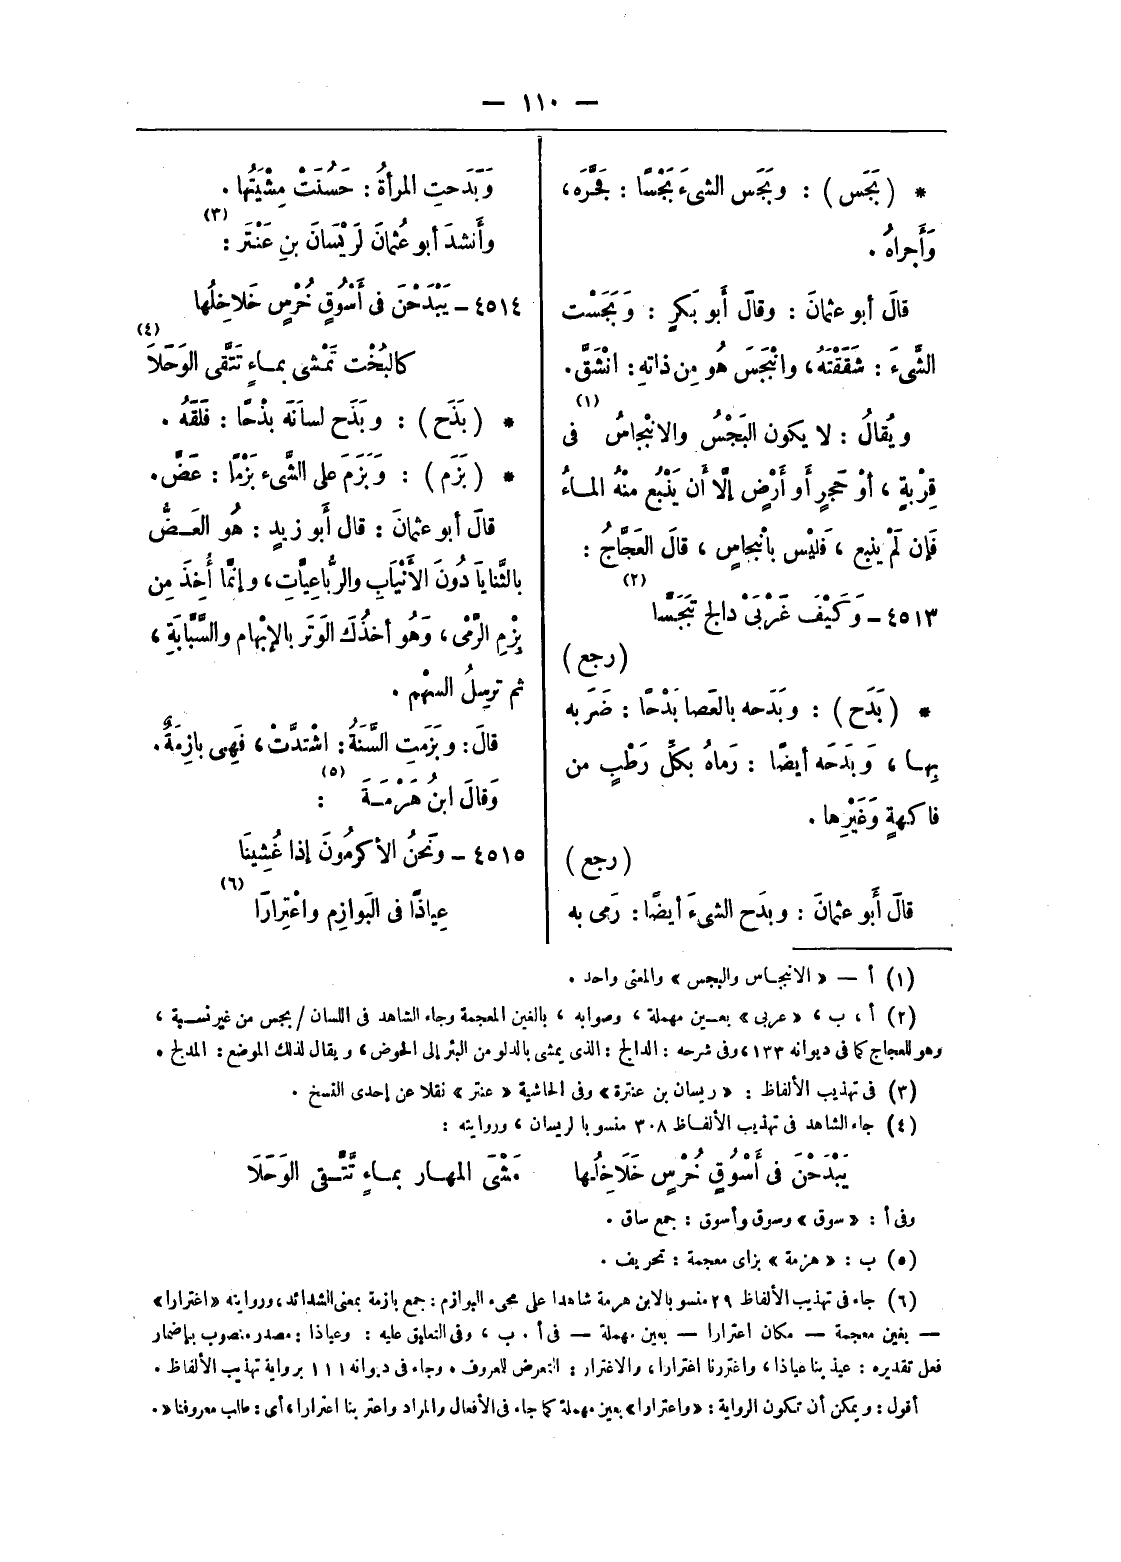 — ١١٠ —
* ( بَجَس ) : وبَجَس الشىءَ بَجْسًا : فَجَّرَه ،
وَأَجراهُ .
قالَ أبو عثمانَ : وقالَ أَبو بَكرٍ : وَبَجَسْت
الشَّىءَ : شَقَقْتَهُ ، وانْبَجَسَ هُو مِن ذاتهِ : انْشَقَّ .
ويُقالُ : لا يكون البَجْسُ والانْبجاسُ (١) فى
قِرْبةٍ ، أوْ حَجرٍ أَو أَرْضٍ إلَّا أَن يَنْبُع منْهُ المـاءُ
فَإن لَمْ ينبع ، فَليْس بانْبجاسٍ ، قالَ العَجَّاجُ :
٤٥١٣ – وَكَيْفَ غَرْبَىْ دالج تبَجَّسَا (٢)
( رجع )
* ( بَدَح ) : وبَدَحه بالعَصا بَدْحًا : ضَرَبه
بِهـا ، وَبدَحَه أيضًا : رَماهُ بكلِّ رَطْبٍ من
فاكهةٍ وَغَيْرِها .
( رجع )
قالَ أَبو عثمانَ : وبدَح الشىءَ أيضًا : رَمى به
وَبَدَحتِ المرأةُ : حَسُنَتْ مِشْيَتُها .
وأَنشدَ أبو عُثمانَ لَرَيْسَانَ بنِ عَنْتَر (٣) :
٤٥١٤ – يَبْدَحْنَ فى أَسْوُقٍ خُرْسٍ خَلاخِلُها
كالبُخْت تمْشى بمـاءٍ تَتَّقى الوَحَلَا (٤)
* ( بَذَح ) : وبَذَح لسانَه بذْحًا : فَلَقَهُ .
* ( بَزَم ) : وَبَزَمَ على الشَّىء بَزْمًا : عَضَّ .
قالَ أبو عثمانَ : قال أَبو زيدٍ : هُو العَـضُّ
بالثَّنايَا دُونَ الأَنْيابِ والرُّباعِيَّاتِ ، وإنمَّا أُخِذَ مِن
بِزْمِ الرَّمْى ، وَهُو أخذُكَ الوَتَر بالإبْهام والسَّبَّابَةِ ،
ثم ترسِلُ السهْم .
قالَ : وبَزَمَتِ السَّنَةُ : اشْتدَّتْ ، فَهى بازِمَةٌ .
وَقالَ ابنُ هَرْمَـةَ (٥) :
٤٥١٥ – ونَحنُ الأكرمُونَ إذا غُشِينَا
عِياذًا فى البَوازِم واعْتِرارًا (٦)
(١) أ — « الانبجـاس والبجس » والمعنى واحد .
(٢) أ ، ب ، « عربى » بعـين مهملة ، وصوابه ، بالغين المعجمة وجاء الشاهد فى اللسان / بجس من غير نسـبة ،
وهو للعجاج كما فى ديوانه ١٣٣ ، وفى شرحه : الدالج : الذى يمشى بالدلو من البئر إلى الحوض ، ويقال لذلك الموضع : المدلج .
(٣) فى تهذيب الألفاظ : « ريسان بن عنترة » وفى الحاشية « عنتر » نقلا عن إحدى النسخ .
(٤) جاء الشاهد فى تهذيب الألفـاظ ٣٠٨ منسوبا لريسان ، وروايته :
يَبْدَحْنَ فى أَسْوُقٍ خُرْسٍ خَلَاخِلُـها مَشْىَ المهـار بمـاءٍ تَتَّـقى الوَحَلَا
وفى أ : « سوق » وسوق وأسوق : جمع ساق .
(٥) ب : « هزمة » بزاى معجمة : تحريف .
(٦) جاء فى تهذيب الألفاظ ٢٩ منسوبا لابن هرمة شاهدا على مجىء البوازم : جمع بازمة بمعنى الشدائد ، وروايته « اغترارا »
— بغين معجمة — مكان اعترارا — بعين مهملة — فى أ . ب ، وفى التعليق عليه : وعياذا : مصدر منصوب بإضمار
فعل تقديره : عيذ بنا عياذا ، واغتررنا اغترارا ، والاغترار : التعرض للعروف . وجاء فى ديوانه ١١١ برواية تهذيب الألفاظ .
أقول : ويمكن أن تكون الرواية : « واعترارا » بعين مهملة كما جاء فى الأفعال والمراد واعتر بنا اعترارا ، أى : طالب معروفنا « .